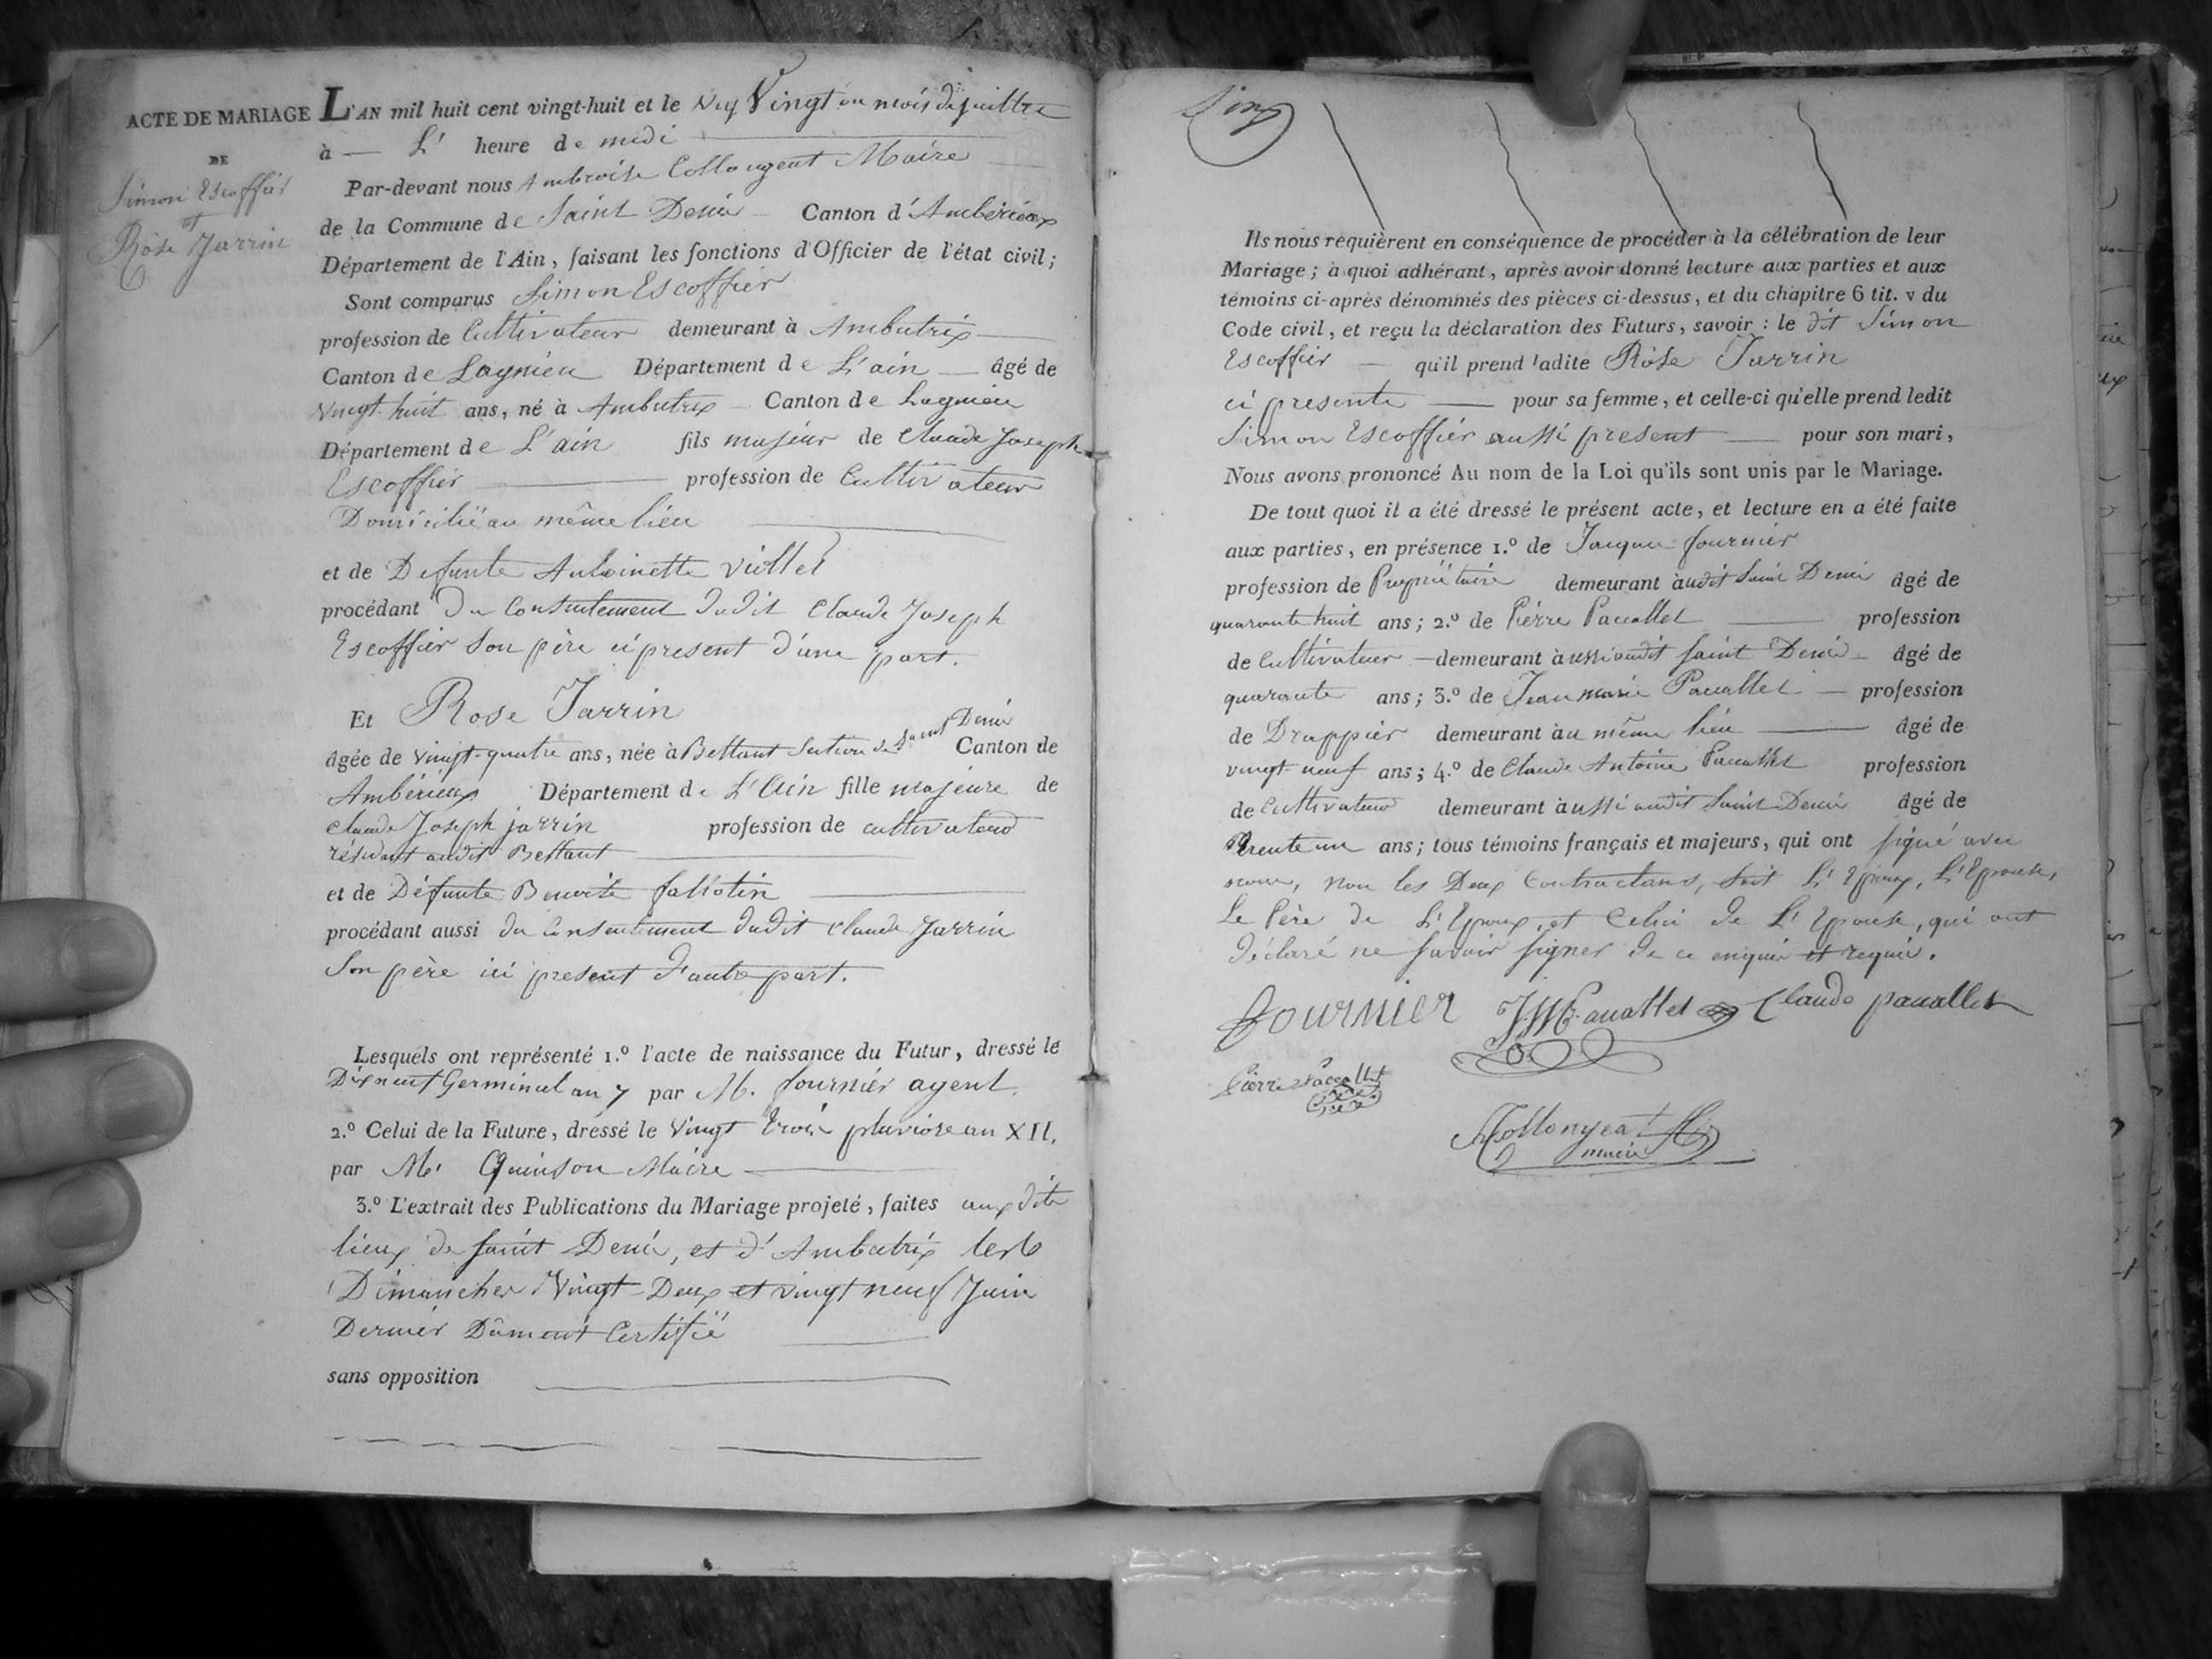 ACTE DE MARIAGE
DE
Simon Escoffier
et
Rose Jarrin
L'AN mil huit cent vingt-huit et le Vingt un mois de juillet
à — L' heure de midi
Par-devant nous Ambroise Collongeat Maire
de la Commune de Saint Denis Canton d'Ambérieux
Département de l'Ain, faisant les fonctions d'Officier de l'état civil;
Sont comparus Simon Escoffier
profession de Cultivateur demeurant à Ambutrix
Canton de Lagnieu Département de L'ain — âgé de
vingt-huit ans, né à Ambutrix Canton de Lagnieu
Département de L'ain fils majeur de Claude Joseph
Escoffier — profession de Cultivateur
Domicilié au même lieu
et de Defunte Antoinette Viollet
procédant Du Consentement dudit Claude Joseph
Escoffier Son père ci present d'une part.
Et Rose Jarrin
âgée de vingt-quatre ans, née à Bettant Section de Saint Denis Canton de
Ambérieux Département de L'Ain fille majeure de
Claude Joseph jarrin profession de cultivateur
résidant audit Bettant
et de Défunte Benoite fallotin
procédant aussi du Consentement dudit Claude Jarrin
Son père ici present d'autre part.
Lesquels ont représenté 1.º l'acte de naissance du Futur, dressé le
Dix neuf Germinal an 7 par M. fournier agent.
2.º Celui de la Future, dressé le Vingt trois pluviose an XII.
par Mr Quinson Maire
3.º L'extrait des Publications du Mariage projeté, faites aux dits
lieux de Saint Denis, et d'Ambutrix les
Dimanches Vingt-Deux et vingt neuf Juin
Dernier Dûment Certifié
sans opposition
Ils nous requièrent en conséquence de procéder à la célébration de leur
Mariage; à quoi adhérant, après avoir donné lecture aux parties et aux
témoins ci-après dénommés des pièces ci-dessus, et du chapitre 6 tit. v du
Code civil, et reçu la déclaration des Futurs, savoir : le dit Simon
Escoffier — qu'il prend ladite Rose Jarrin
ci presente — pour sa femme, et celle-ci qu'elle prend ledit
Simon Escoffier aussi present — pour son mari,
Nous avons prononcé Au nom de la Loi qu'ils sont unis par le Mariage.
De tout quoi il a été dressé le présent acte, et lecture en a été faite
aux parties, en présence 1.º de Jacques fournier
profession de Propriétaire demeurant audit Saint Denis âgé de
quarante huit ans; 2.º de Pierre Paccallet — profession
de Cultivateur — demeurant aussi audit Saint Denis — âgé de
quarante ans; 3.º de Jean marie Paccallet — profession
de Drappier demeurant au même lieu — âgé de
vingt-neuf ans; 4.º de Claude Antoine Paccallet profession
de Cultivateur demeurant aussi audit Saint Denis âgé de
Trente un ans; tous témoins français et majeurs, qui ont signé avec
nous, non les Deux Contractans, soit L'Epoux, L'Epouse,
Le Père de L'Epoux, et Celui de L'Epouse, qui ont
Déclaré ne Savoir signer de ce enquis et requis.
fournier JM Pacallet Claude pacallet
Pierre Paccallet
Collongeat
maire